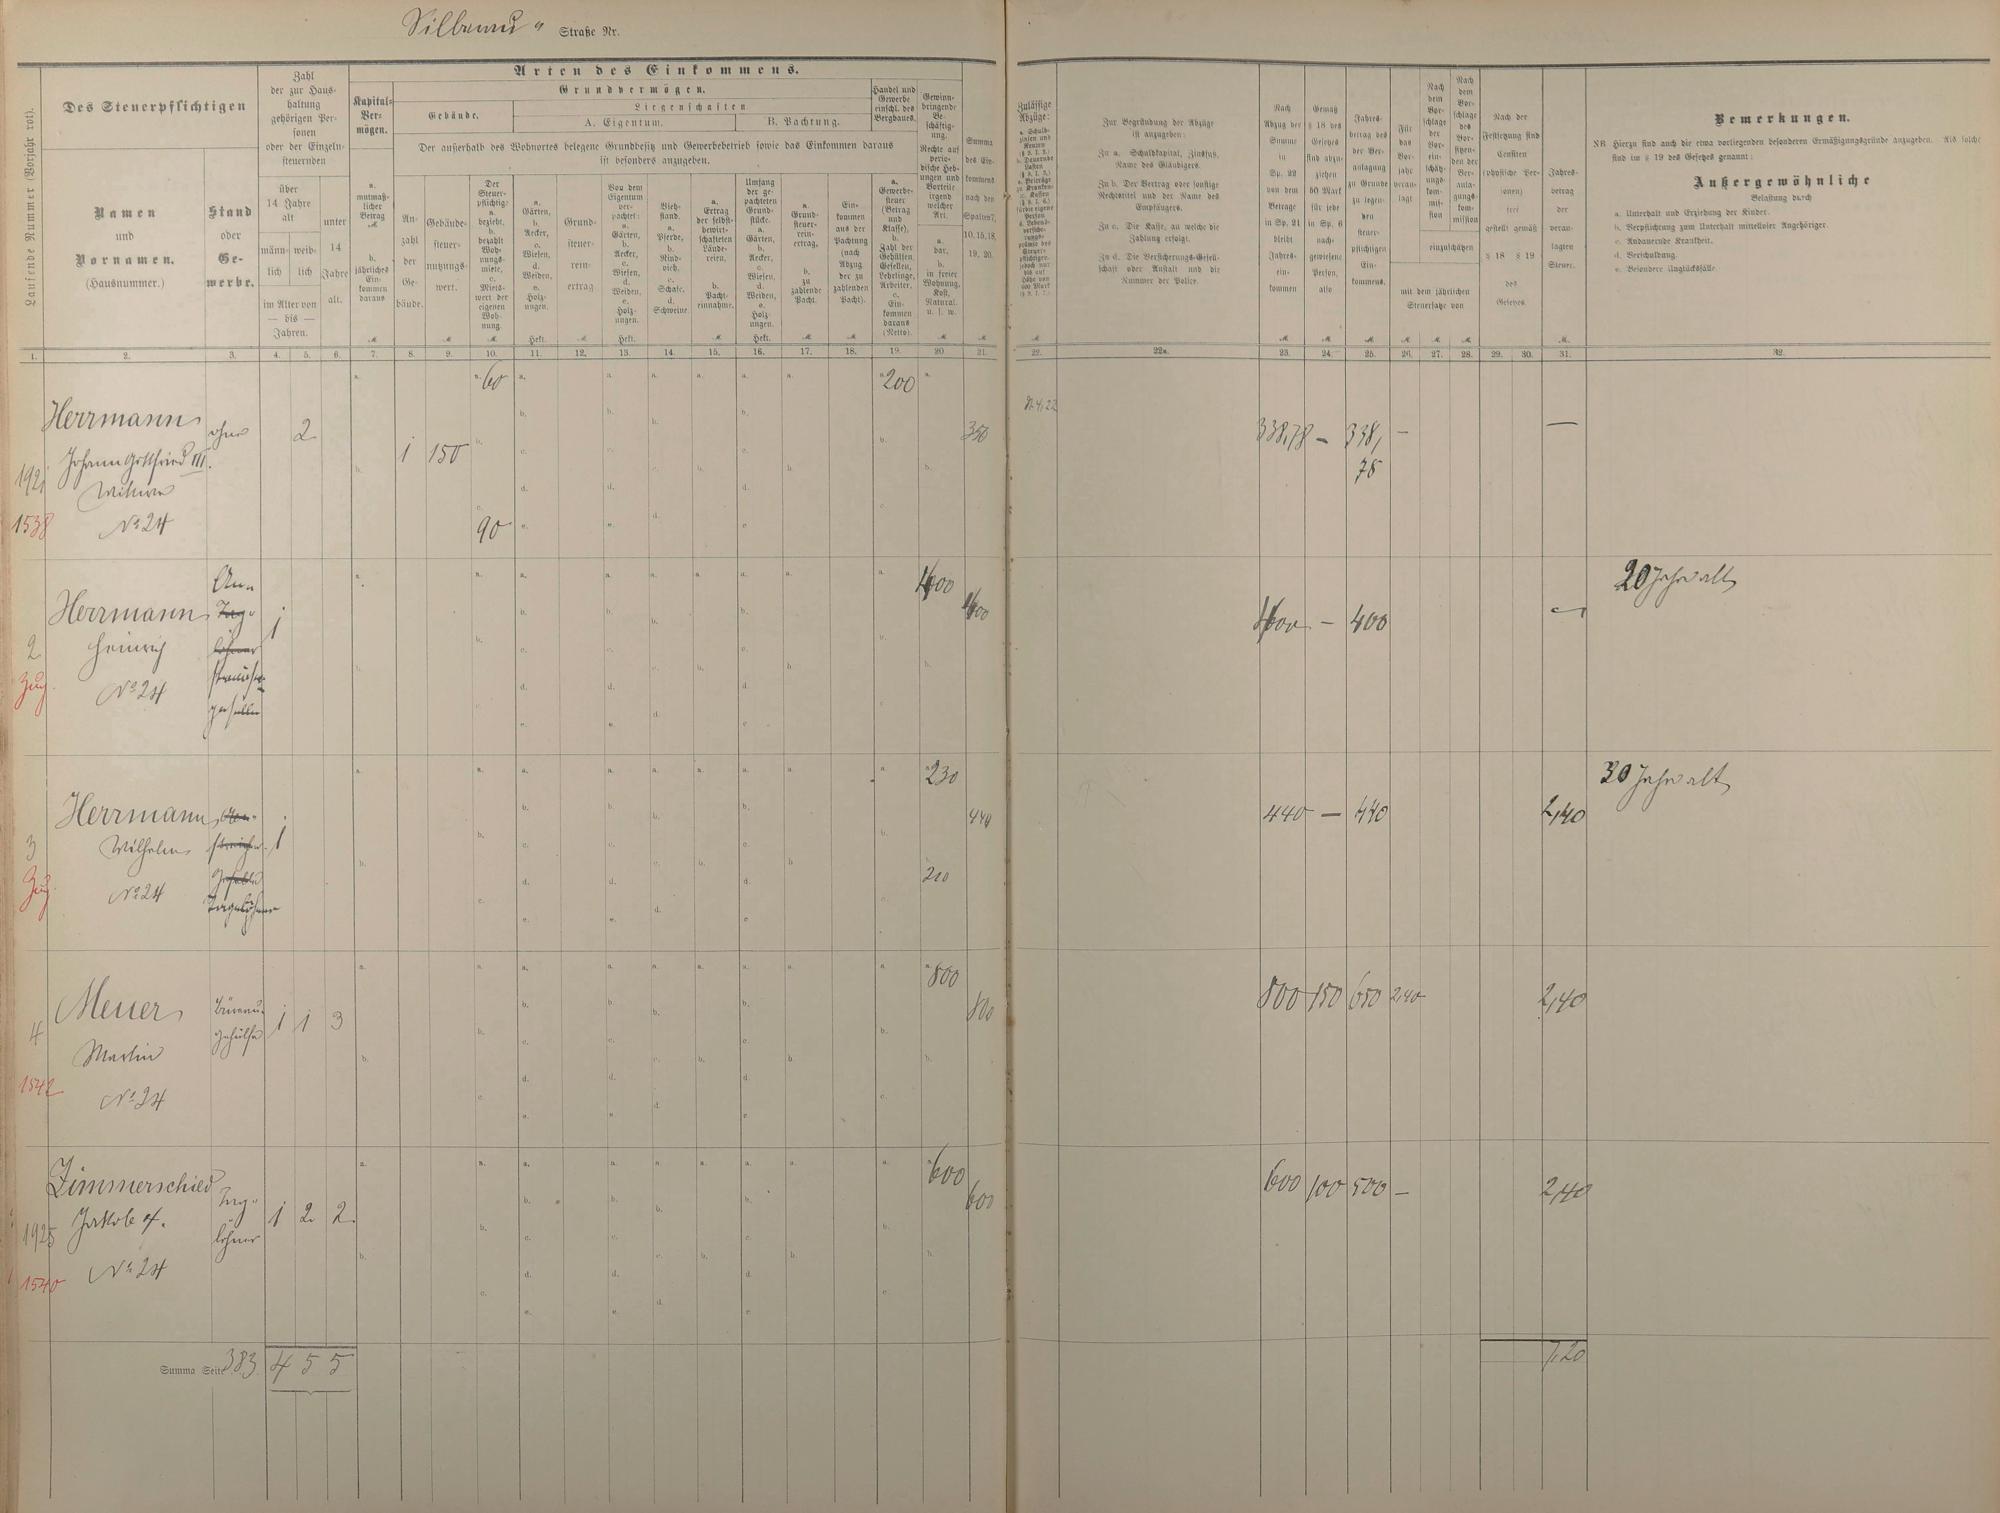 Straße Nr.
Laufende Nummer (Vorjahr rot).
Des Steuerpflichtigen
Namen
und
Vornamen.
(Hausnummer.)
Stand
oder
Ge-
werbe.
Zahl
der zur Haus-
haltung
gehörigen Per-
sonen
oder der Einzeln-
steuernden
über
14 Jahre
alt
männ-
lich
weib-
lich
im Alter von
— bis —
Jahren.
unter
14
Jahre
alt.
Arten des Einkommens.
Kapital-
Ver-
mögen.
a.
mutmaß-
licher
Betrag
b.
jährliches
Ein-
kommen
daraus
Grundvermögen.
Gebäude.
Liegenschaften
A. Eigentum.
B. Pachtung.
Der außerhalb des Wohnortes belegene Grundbesitz und Gewerbebetrieb sowie das Einkommen daraus
ist besonders anzugeben.
An-
zahl
der
Ge-
bäude.
Gebäude-
steuer-
nutzungs-
wert.
Der
Steuer-
pflichtige:
a.
bezieht.
b.
bezahlt
Woh-
nungs-
miete,
c.
Miets-
wert der
eigenen
Woh-
nung.
a.
Gärten,
b.
Aecker,
c.
Wiesen,
d.
Weiden,
e.
Holz-
ungen.
Hekt.
Grund-
steuer-
rein-
ertrag
Von dem
Eigentum
ver-
pachtet:
a.
Gärten,
b.
Aecker,
c.
Wiesen,
d.
Weiden,
e.
Holz-
ungen.
Hekt.
Vieh-
stand.
a.
Pferde,
b.
Rind-
vieh.
c.
Schafe.
d.
Schweine.
a.
Ertrag
der selbst-
bewirt-
schafteten
Lände-
reien,
b.
Pacht-
einnahme.
Umfang
der ge-
pachteten
Grund-
stücke.
a.
Gärten,
b.
Aecker,
c.
Wiesen,
d.
Weiden,
e.
Holz-
ungen.
Hekt.
a.
Grund-
steuer-
rein-
ertrag,
b.
zu
zahlende
Pacht.
Ein-
kommen
aus der
Pachtung
(nach
Abzug
der zu
zahlenden
Pacht).
Handel und
Gewerbe
einschl. des
Bergbaues.
a.
Gewerbe-
steuer
(Betrag
und
Klasse),
b.
Zahl der
Gehülfen,
Gesellen,
Lehrlinge,
Arbeiter.
c.
Ein-
kommen
daraus
(Netto).
Gewinn-
bringende
Be-
schäftig-
ung.
Rechte auf
perio-
dische Heb-
ungen und
Vorteile
irgend
welcher
Art.
a.
bar,
b.
in freier
Wohnung,
Kost,
Natural.
u. s. w.
Summa
des Ein-
kommens
nach den
Spalten 7,
10, 15, 18,
19, 20.
Zulässige
Abzüge:
Zur Begründung der Abzüge
ist anzugeben:
Zu a. Schuldkapital, Zinsfuß,
Name des Gläubigers.
Zu b. Der Vertrag oder sonstige
Rechtstitel und der Name des
Empfängers.
Zu c. Die Kasse, an welche die
Zahlung erfolgt.
Zu d. Die Versicherungs-Gesell-
schaft oder Anstalt und die
Nummer der Police.
Nach
Abzug der
Summe
in
Sp. 22
von dem
Betrage
in Sp. 21
bleibt
Jahres-
ein-
kommen
Gemäß
§ 18 des
Gesetzes
sind abzu-
ziehen
50 Mark
für jede
in Sp. 6
nach-
gewiesene
Person,
also
Jahres-
betrag des
der Ver-
anlagung
zu Grunde
zu legen-
den
steuer-
pflichtigen
Ein-
kommens.
Für
das
Vor-
jahr
veran-
lagt
Nach
dem
Vor-
schlage
der
Vor-
ein-
schätz-
ungs-
kom-
mission
Nach
dem
Vor-
schlage
des
Vor-
sitzen-
den der
Ver-
anla-
gungs-
kom-
mission
einzuschätzen
mit dem jährlichen
Steuersatze von
Nach der
Festsetzung sind
Censiten
(physische Per-
sonen)
frei
gestellt gemäß
§ 18 § 19
des
Gesetzes.
Jahres-
betrag
der
veran-
lagten
Steuer.
Bemerkungen.
NB. Hierzu sind auch die etwa vorliegenden besonderen Ermäßigungsgründe anzugeben. Als solche
sind im § 19 des Gesetzes genannt:
Außergewöhnliche
Belastung durch
a. Unterhalt und Erziehung der Kinder.
b. Verpflichtung zum Unterhalt mittelloser Angehöriger.
c. Andauernde Krankheit.
d. Verschuldung.
e. Besondere Unglücksfälle.
1. 2. 3. 4. 5. 6. 7. 8. 9. 10. 11. 12. 13. 14. 15. 16. 17. 18. 19. 20. 21. 22. 22a. 23. 24. 25. 26. 27. 28. 29. 30. 31. 32.
1921
1538
Herrmann
Johann Gottfried III.
Witwe
No 24
ohne
2
1 150
60
90
200
350
338,78 — 338,
78
— —
2
Zug.
Herrmann
Heinrich
No 24
1
400
400
— 400
20 Jahre alt
3
Zug.
Herrmann
Wilhelm
No 24
Tagelöhner
1
230
210
440
440 — 440
2,40
30 Jahre alt
4
1542
Meuer
Martin
No 24
1 1 3
800
800
800 150 650 2,40
2,40
1925
1540
Zimmerschied
Jakob 4.
No 24
Tag-
löhner
1 2 2
600
600
600 100 500 —
2,40
Summa Seite 383 4 5 5
7,20